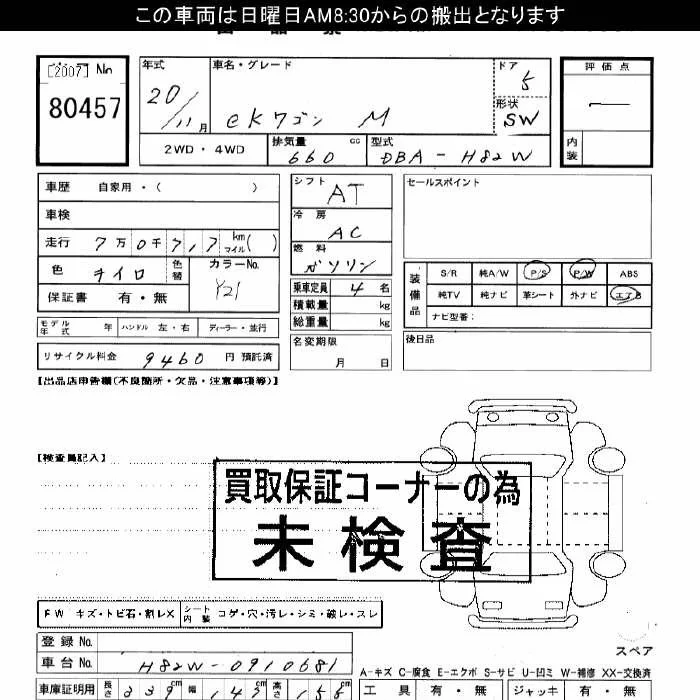 この車両は日曜日AM8:30からの搬出となります
[2007] No
80457
年式 20/11月
車名・グレード eKワゴン M
ドア 5
形状 SW
評価点
内装
2WD・4WD
排気量 660 cc
型式 DBA-H82W
車歴 自家用・( )
車検
走行 7万0千717 km マイル( )
色 キイロ 色替 カラーNo. Y21
保証書 有・無
モデル年式 年 ハンドル 左・右 ディーラー・並行
リサイクル料金 9460 円 預託済
シフト AT
冷房 AC
燃料 ガソリン
乗車定員 4 名
積載量 kg
総重量 kg
名変期限 月 日
セールスポイント
装備品
S/R 純A/W P/S P/W ABS
純TV 純ナビ 革シート 外ナビ エアB
ナビ型番:
後日品
【出品店申告欄(不良箇所・欠品・注意事項等)】
【検査員記入】
買取保証コーナーの為
未検査
FW キズ・トビ石・割レX シート内装 コゲ・穴・汚レ・シミ・破レ・スレ
登録No.
車台No. H82W-0910681
スペア
A-キズ C-腐食 E-エクボ S-サビ U-凹ミ W-補修 XX-交換済
車庫証明用 長さ 339cm 幅 147cm 高さ 155cm
工具 有・無 ジャッキ 有・無